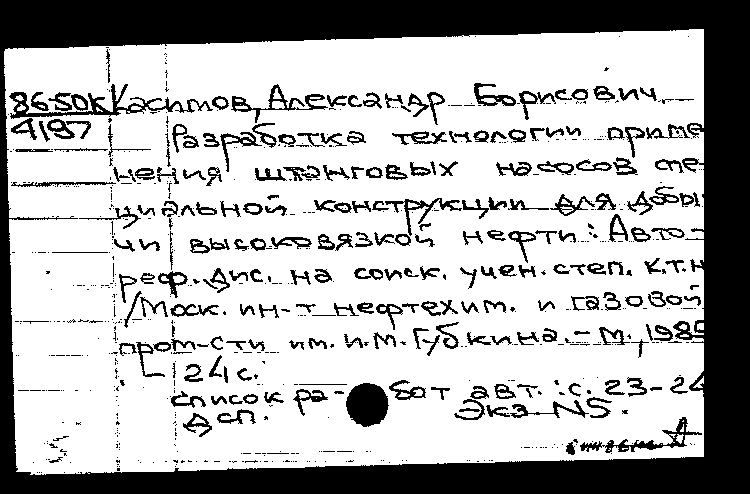 86-50к Касимов, Александр Борисович.
4197 Разработка технологии приме
нения штанговых насосов спе-
циальной конструкции для добы
чи высоковязкой нефти: Авто-
реф. дис. на соиск. учен. степ. к.т.н
/Моск. ин-т нефтехим. и газовой
пром-сти им. И.М. Губкина. - М., 1985
. - 24 с.
список ра- бот авт.: с. 23-24
дсп. Экз N5.
Д